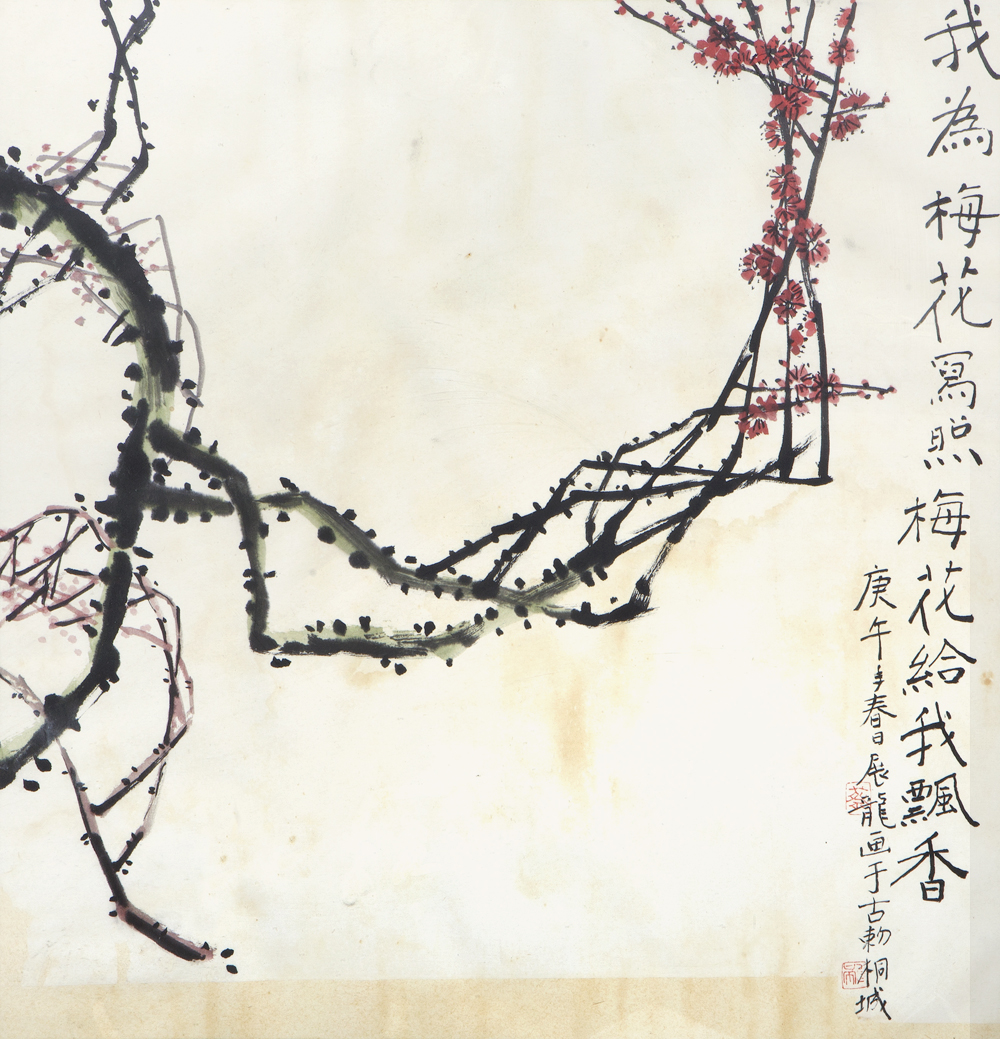 我為梅花寫照梅花給我飄香
庚午年春日展龍画于古勅桐城